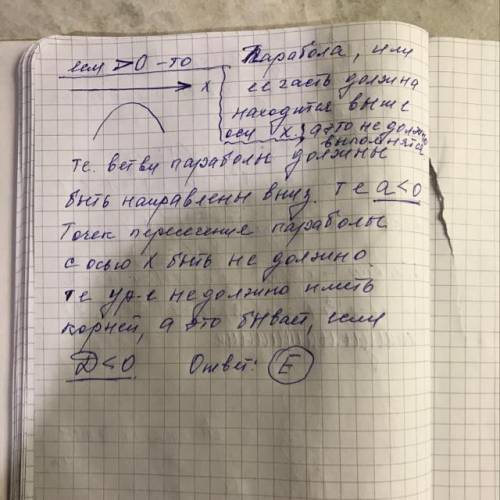 если >0 - то
Парабола, или
ее часть должна
x
находится выше
оси x, а это не должно
выполнятся
те. ветви параболы должны
быть направлены вниз. те a<0
Точек пересечение параболы
с осью x быть не должно
те ур-е не должно иметь
корней, а это бывает, если
D<0 Ответ: E